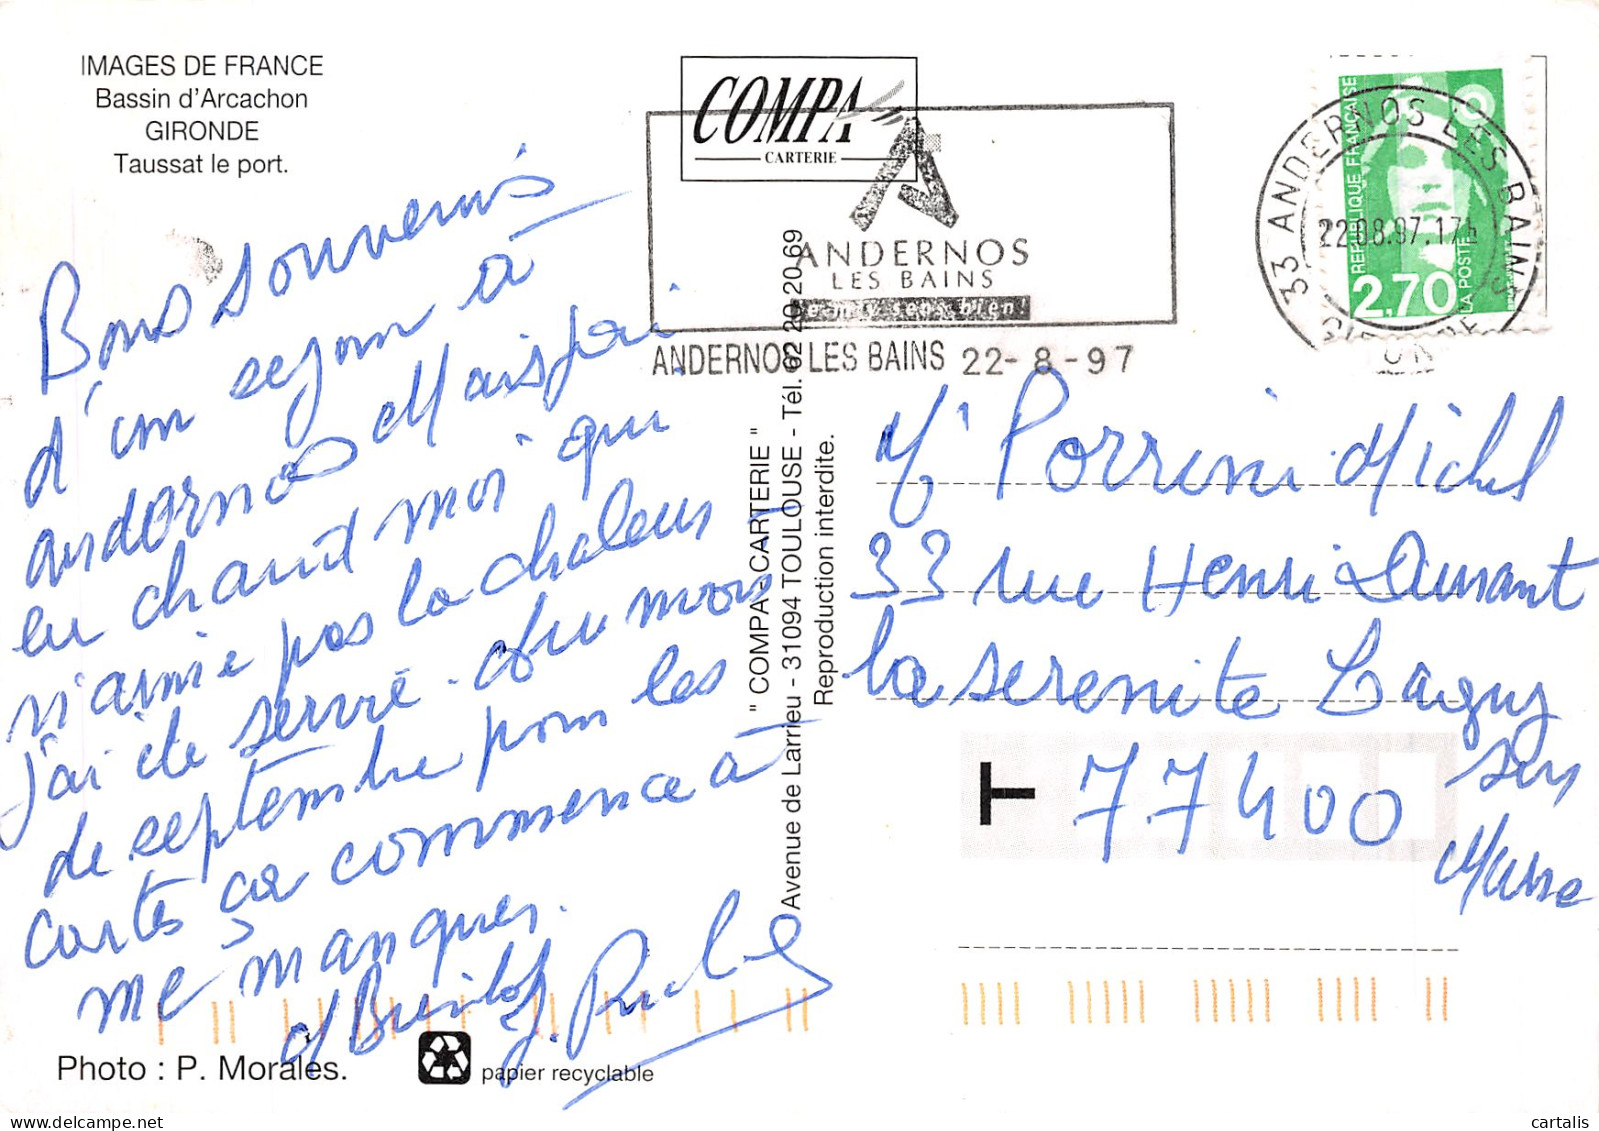 IMAGES DE FRANCE
Bassin d'Arcachon
GIRONDE
Taussat le port.
Bons souvenirs
d'un sejour à
andernos Mais j'ai
eu chaud moi qui
n'aimie pas la chaleur
j'ai ete servie. du mois
de septembre pour les
cartes ça commence à
me manquer.
Photo : P. Morales.
papier recyclable
COMPA
CARTERIE
ANDERNOS
LES BAINS
ANDERNOS LES BAINS 22-8-97
" COMPA - CARTERIE "
Avenue de Larrieu - 31094 TOULOUSE - Tél. 62 20 20 69
Reproduction interdite.
33 ANDERNOS LES BAINS
22.08.97.17h
REPUBLIQUE FRANÇAISE
2,70
LA POSTE
Mr Porrini Michel
33 rue Henri Dunant
la serenite Lagny
sur
77400
Marne
cartalis